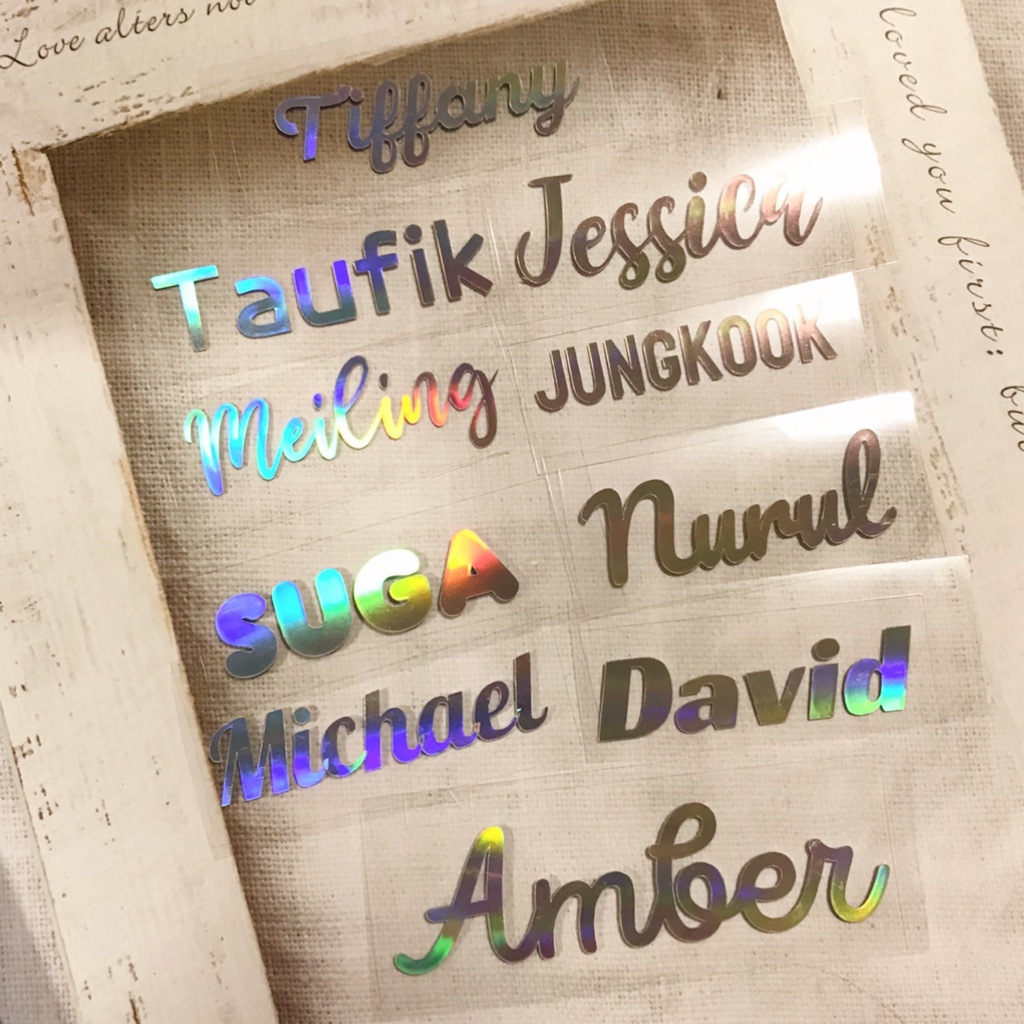 Love alters not
Tiffany
Taufik Jessica
Meiling JUNGKOOK
SUGA Nurul
Michael David
Amber
loved you first: but